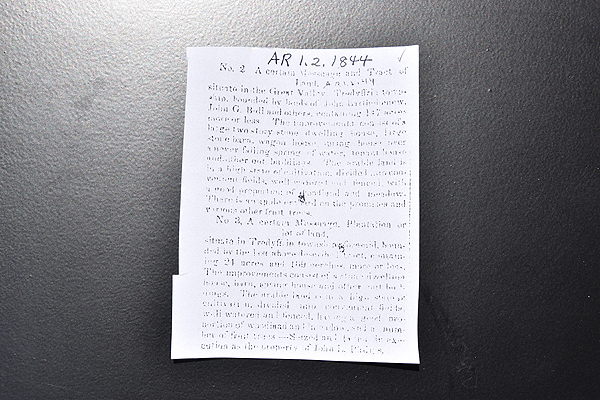 AR 1.2.1844
No. 2 A certain Messuage and Tract of
Land,
situate in the Great Valley, Tredyffrin town-
ship, bounded by lands of John
John G. Bull and others, containing 137 acres
more or less. The improvements consist of a
large two story stone dwelling house, large
stone barn, wagon house spring house over
a never failing spring of water, tenant house
and other out buildings. The arable land is
in a high state of cultivation, divided into con-
venient fields, well watered and fenced, with
a good proportion of woodland and meadow.
There is an apple orchard on the premises and
various other fruit trees.
No. 3, A certain Messuage, Plantation or
lot of land,
situate in Tredyffrin township aforesaid, boun-
ded by the last above described tract, contain-
ing 21 acres and 109 perches, more or less.
The improvements consist of a stone dwelling
house, barn, spring house and other out build-
ings. The arable land is in a high state of
cultivation, divided into convenient fields,
well watered and fenced, having a good pro-
portion of woodland and meadow, and a num-
ber of fruit trees.—Seized and taken in exe-
cution as the property of John